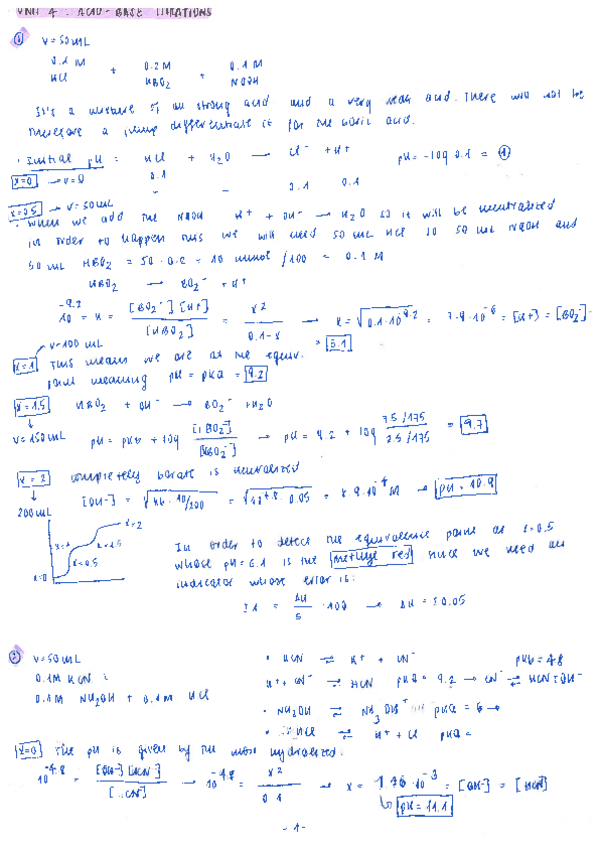 UNIT 4. ACID-BASE TITRATIONS
① V=50mL
0.1M HCl + 0.2M HBO2 + 0.1M NaOH
It's a mixture of an strong acid and a very weak acid. There will not be
therefore a jump differentiate it for the boric acid.
· Initial pH : HCl + H2O → Cl⁻ + H⁺ pH = -log 0.1 = ①
x=0 → V=0 0.1
- - 0.1 0.1
x=0.5 → V=50mL
· When we add the NaOH H⁺ + OH⁻ → H2O so it will be neutralized
in order to happen this we will need 50 mL HCl to 50 mL NaOH and
50 mL HBO2 = 50 · 0.2 = 10 mmol /100 = 0.1 M
HBO2 → BO2⁻ + H⁺
10^-9.2 = K = [BO2⁻][H⁺] / [HBO2] = x² / 0.1-x → x = √0.1·10^-9.2 = 7.9·10^-6 = [H⁺] = [BO2⁻]
→ 5.1
V=100 mL
x=1 This means we are at the equiv.
point meaning pH = pKa = 9.2
x=1.5 HBO2 + OH⁻ → BO2⁻ + H2O
V=150mL pH = pKa + log [BO2⁻] / [HBO2] → pH = 9.2 + log 7.5/175 / 2.5/175 = 9.7
x=2 completely borate is neutralized
200mL [OH⁻] = = 8.9·10^-4 M → pH = 10.9
x=2
x=1 x=1.5
x=0.5
x=0
In order to detect the equivalence point at x=0.5
whose pH=5.1 is the methyl red since we need an
indicator whose error is:
± 1 = ΔH / 5 · 100 → ΔH = ±0.05
② V=50mL
0.1M KCN
0.1M NH2OH + 0.1M HCl
· KCN ⇌ K⁺ + CN⁻ pKb=4.8
H⁺ + CN⁻ ⇌ HCN pKa = 9.2 → CN⁻ ⇌ HCN+OH⁻
· NH2OH ⇌ NH3OH⁺ pKa = 6 →
· HCl ⇌ H⁺ + Cl pKa =
x=0 The pH is given by the most hydrolized.
10^-4.8 = [OH⁻][HCN] / [CN⁻] → 10^-4.8 = x² / 0.1 → x = 1.26·10^-3 = [OH⁻] = [HCN]
→ pH=11.1
- 1 -